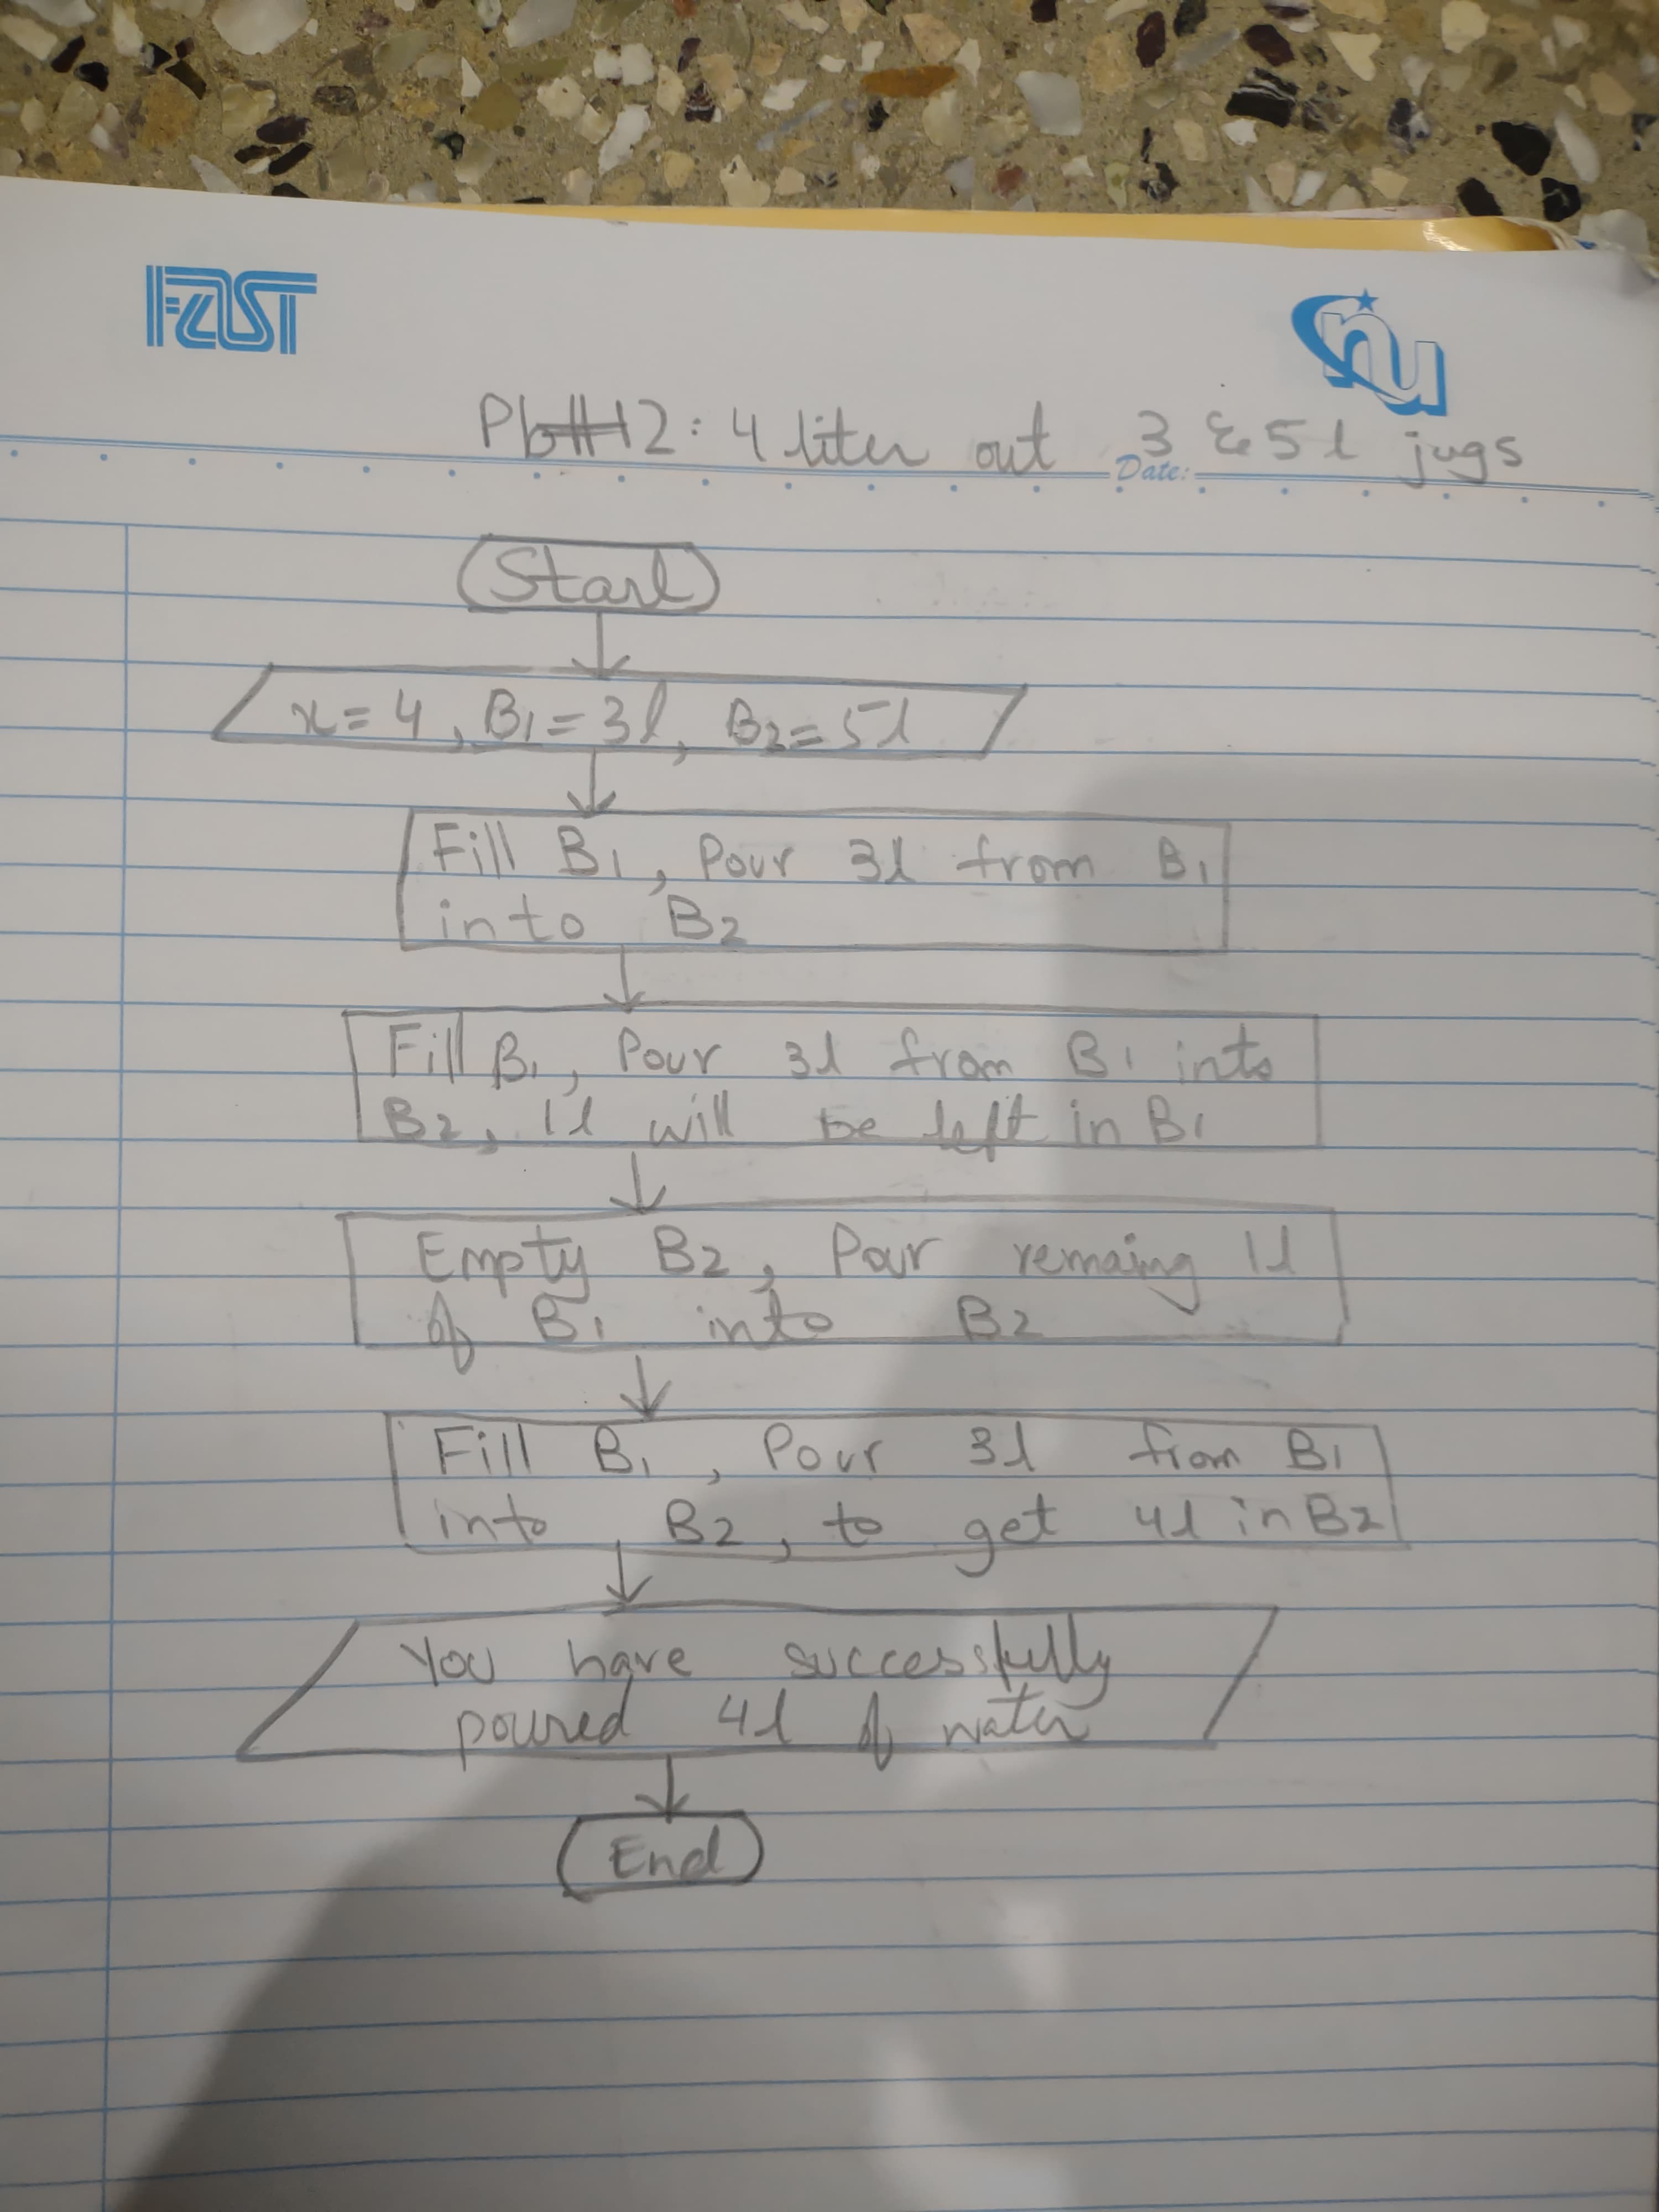 FAST
nu
Pb#12: 4 liter out 3 & 5 l jugs
Date:
Start
x=4, B1=3l, B2=5l
Fill B1, Pour 3l from B1
into B2
Fill B1, Pour 3l from B1 into
B2, 1l will be left in B1
Empty B2, Pour remaing 1l
of B1 into B2
Fill B1, Pour 3l from B1
into B2, to get 4l in B2
You have successfully
poured 4l of water
End